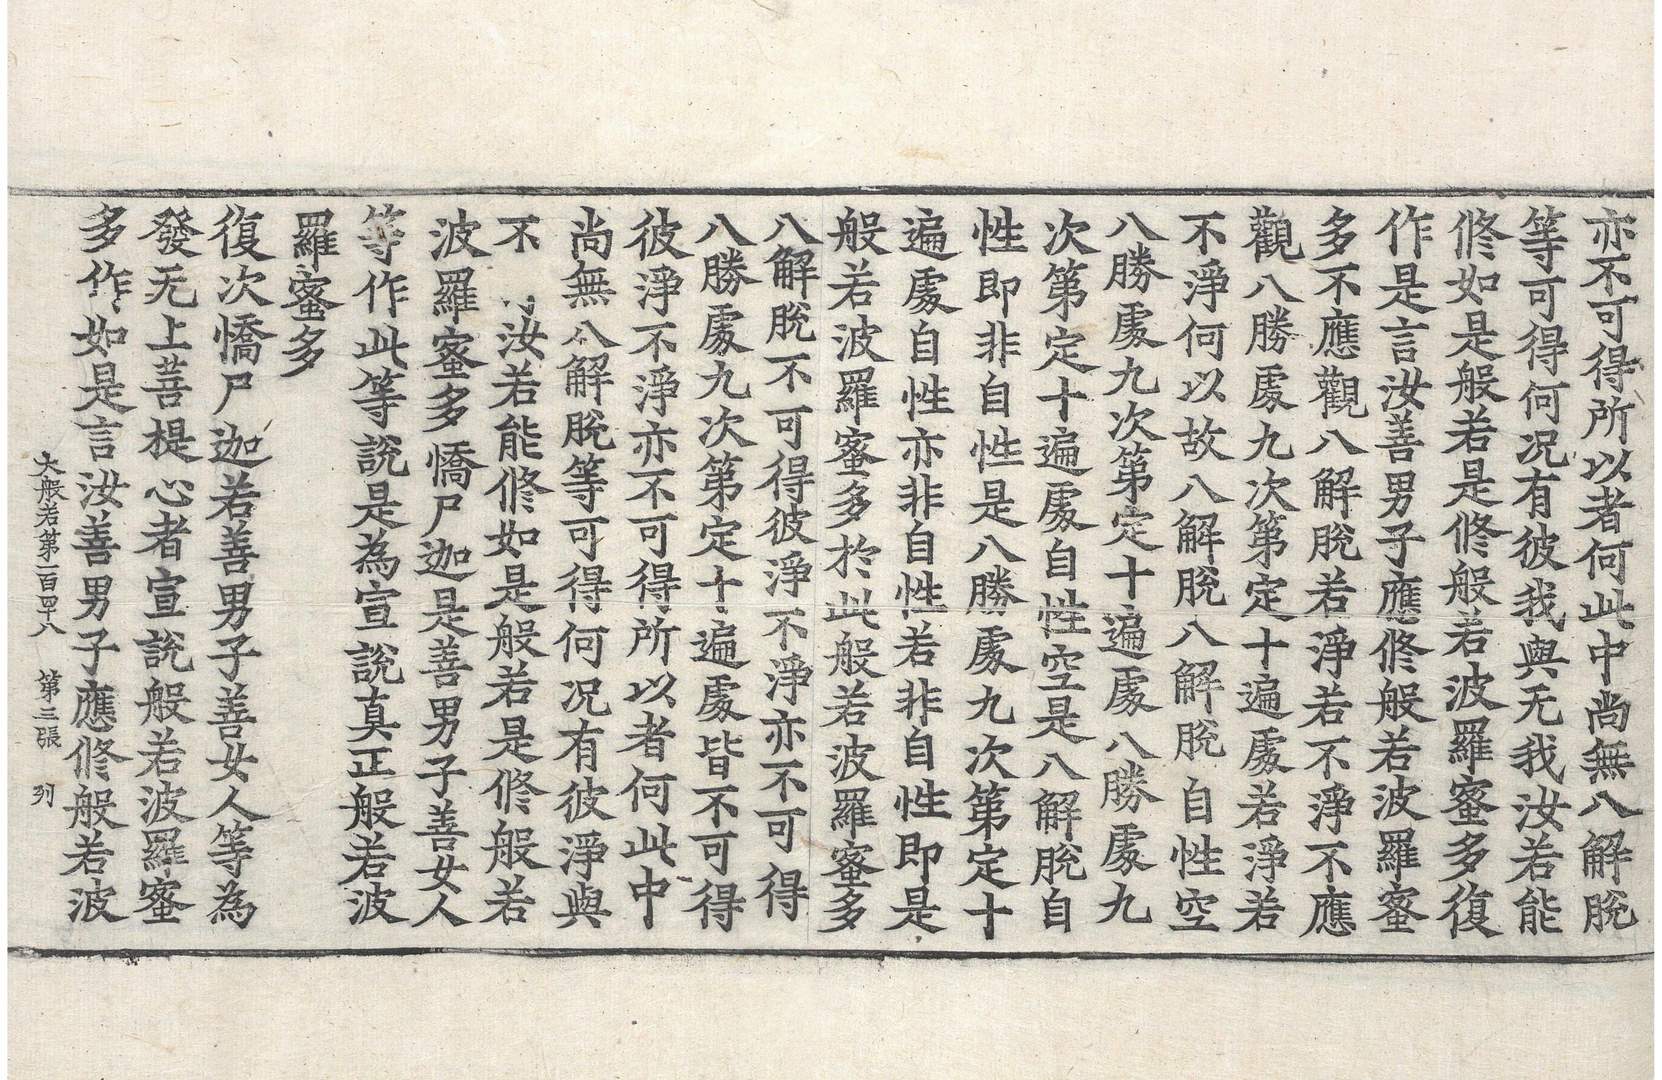 亦不可得所以者何此中尚無八解脫
等可得何况有彼我與无我汝若能
修如是般若是修般若波羅蜜多復
作是言汝善男子應修般若波羅蜜
多不應觀八解脫若淨若不淨不應
觀八勝處九次第定十遍處若淨若
不淨何以故八解脫八解脫自性空
八勝處九次第定十遍處八勝處九
次第定十遍處自性空是八解脫自
性即非自性是八勝處九次第定十
遍處自性亦非自性若非自性即是
般若波羅蜜多於此般若波羅蜜多
八解脫不可得彼淨不淨亦不可得
八勝處九次第定十遍處皆不可得
彼淨不淨亦不可得所以者何此中
尚無八解脫等可得何况有彼淨與
不汝若能修如是般若是修般若
波羅蜜多憍尸迦是善男子善女人
等作此等說是為宣說真正般若波
羅蜜多
復次憍尸迦若善男子善女人等為
發无上菩提心者宣說般若波羅蜜
多作如是言汝善男子應修般若波
大般若第一百四十八 第三張 列